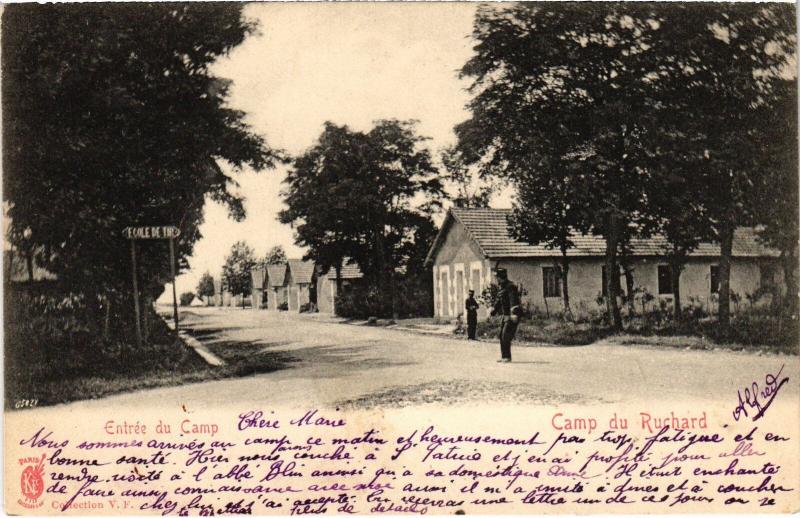 ECOLE DE TIR
Entrée du Camp
Camp du Ruchard
Alfred
Chère Marie
Nous sommes arrivés au camp ce matin et heureusement pas trop fatigué et en
bonne santé. Hier nous avons couché à St et j'ai profité pour aller
rendre visite à l'abbé ainsi qu'a sa domestique Il était enchanté
de faire ainsi connaissance avec moi aussi il m'a invité à dîner et à coucher
chez lui j'ai accepté. Tu recevras une lettre un de ces jours où je
te plus de détails
PARIS
Collection V. F.